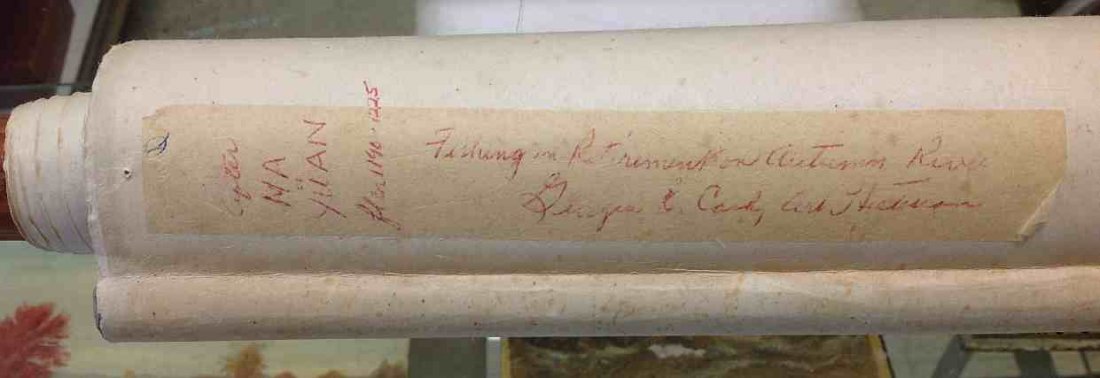 after
MA
YÜAN
flor 1190-1225
Fishing in Retirement on Autumn River
E. Cady, Art Historian